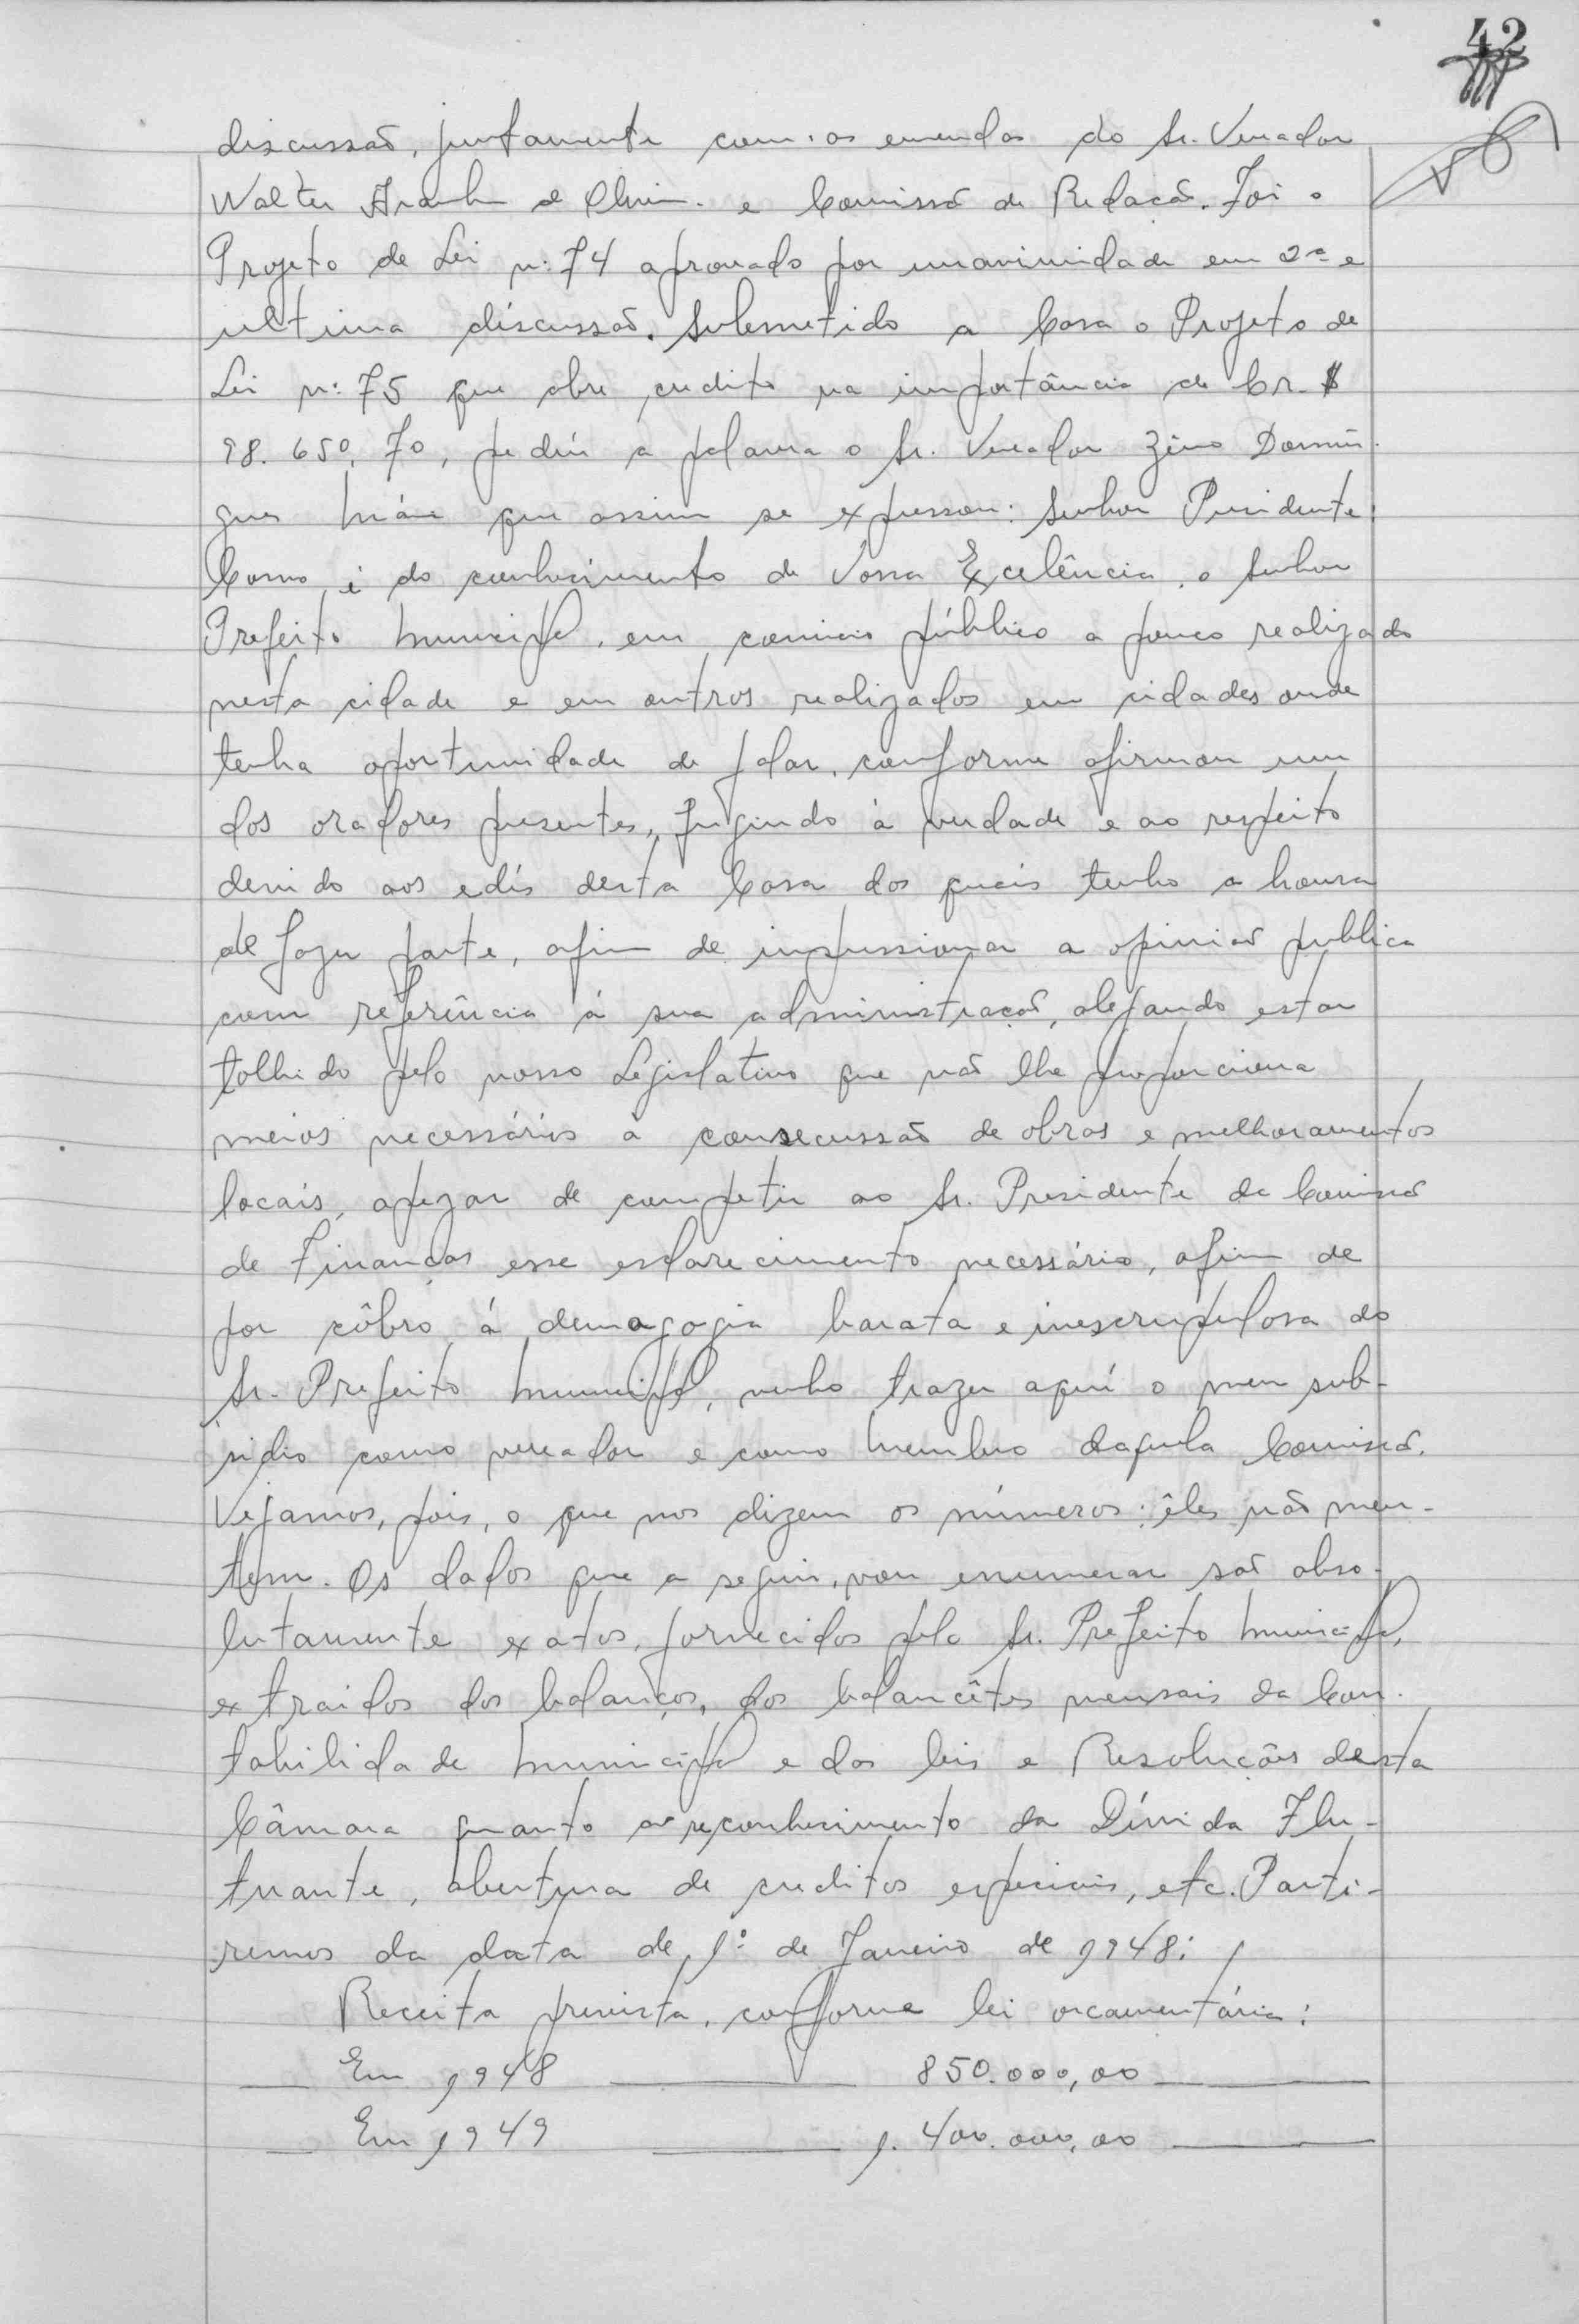 42
discussão, juntamente com as emendas do Sr. Vereador
Walter Aranha de Oliv. e Comissão de Redacão. Foi o
Projeto de Lei n: 74 aprovado por unanimidade em 2ª e
ultima discussão. Submetido a Casa o Projeto de
Lei n: 75 que abre credito na importância de Cr. $
98.650,70, pediu a palavra o Sr. Vereador Zeno Domin-
gues que assim se expressou: Senhor Presidente:
Como é do conhecimento de Vossa Excelência, o Senhor
Prefeito Municipal, em comicio público a pouco realizado
nesta cidade e em outros realizados em cidades onde
tenha oportunidade de falar, conforme afirmou um
dos oradores presentes, fugindo à verdade e ao respeito
devido aos edís desta Casa dos quais tenho a honra
de fazer parte, afim de impressionar a opinião publica
com referência á sua administração, alegando estar
tolhido pelo nosso Legislativo que não lhe proporciona
meios necessários à consecussão de obras e melhoramentos
locais, apezar de competir ao Sr. Presidente da Comissão
de Finanças esse esclarecimento necessário, afim de
por côbro á demagogia barata e inescrupulosa do
Sr. Prefeito Municipal, venho trazer aquí o meu sub-
sidio como vereador e como Membro daquela Comissão.
Vejamos, pois, o que nos dizem os números: êles não men-
tem. Os dados que a seguir, vou enumerar são abso-
lutamente exatos, fornecidos pelo Sr. Prefeito Municipal,
extraidos dos balanços, dos balancêtes mensais da Con-
tabilidade Municipal e das leis e Resoluções desta
Câmara quanto ao reconhecimento da Dívida Flu-
tuante, abertura de creditos especiais, etc. Parti-
remos da data de 1º de Janeiro de 1948:
Receita prevista, conforme lei orcamentária:
Em 1948 850.000,00
Em 1949 1.400.000,00